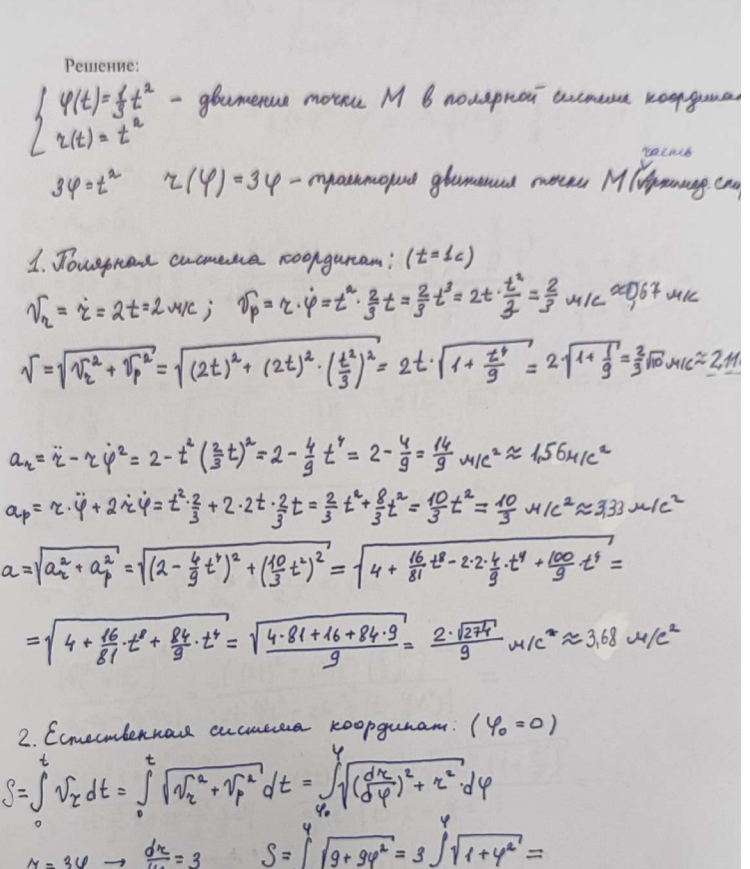 Решение:
{ φ(t) = 1/3 t² – движение точки М в полярной системе координат
r(t) = t²
часть
3φ = t² r(φ) = 3φ – траектория движения точки М (Архимед. спир
1. Полярная система координат: (t = 1c)
Vr = ṙ = 2t = 2 м/с ; Vp = r·φ̇ = t²·2/3 t = 2/3 t³ = 2t·t²/3 = 2/3 м/с ≈ 0,67 м/с
V = √(Vr² + Vp²) = √((2t)² + (2t)²·(t²/3)²) = 2t·√(1 + t⁴/9) = 2√(1 + 1/9) = 2/3 √10 м/с ≈ 2,11
ar = r̈ - rφ̇² = 2 - t²(2/3 t)² = 2 - 4/9 t⁴ = 2 - 4/9 = 14/9 м/с² ≈ 1,56 м/с²
ap = r·φ̈ + 2ṙφ̇ = t²·2/3 + 2·2t·2/3 t = 2/3 t² + 8/3 t² = 10/3 t² = 10/3 м/с² ≈ 3,33 м/с²
a = √(ar² + ap²) = √((2 - 4/9 t⁴)² + (10/3 t²)²) = √(4 + 16/81 t⁸ - 2·2·4/9·t⁴ + 100/9·t⁴) =
= √(4 + 16/81·t⁸ + 84/9·t⁴) = √(4·81 + 16 + 84·9)/9 = 2·√274/9 м/с² ≈ 3,68 м/с²
2. Естественная система координат: (φ₀ = 0)
S = ∫₀ᵗ Vr dt = ∫₀ᵗ √(Vr² + Vp²) dt = ∫φ₀^φ √((dr/dφ)² + r²)·dφ
r = 3φ → dr/dφ = 3 S = ∫^φ √(9 + 9φ²) = 3 ∫^φ √(1 + φ²) =